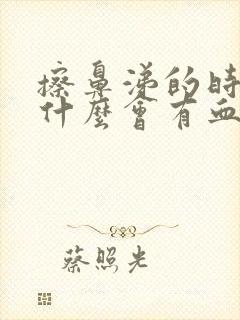 擦鼻涕的時
什麼會有血
蔡照光